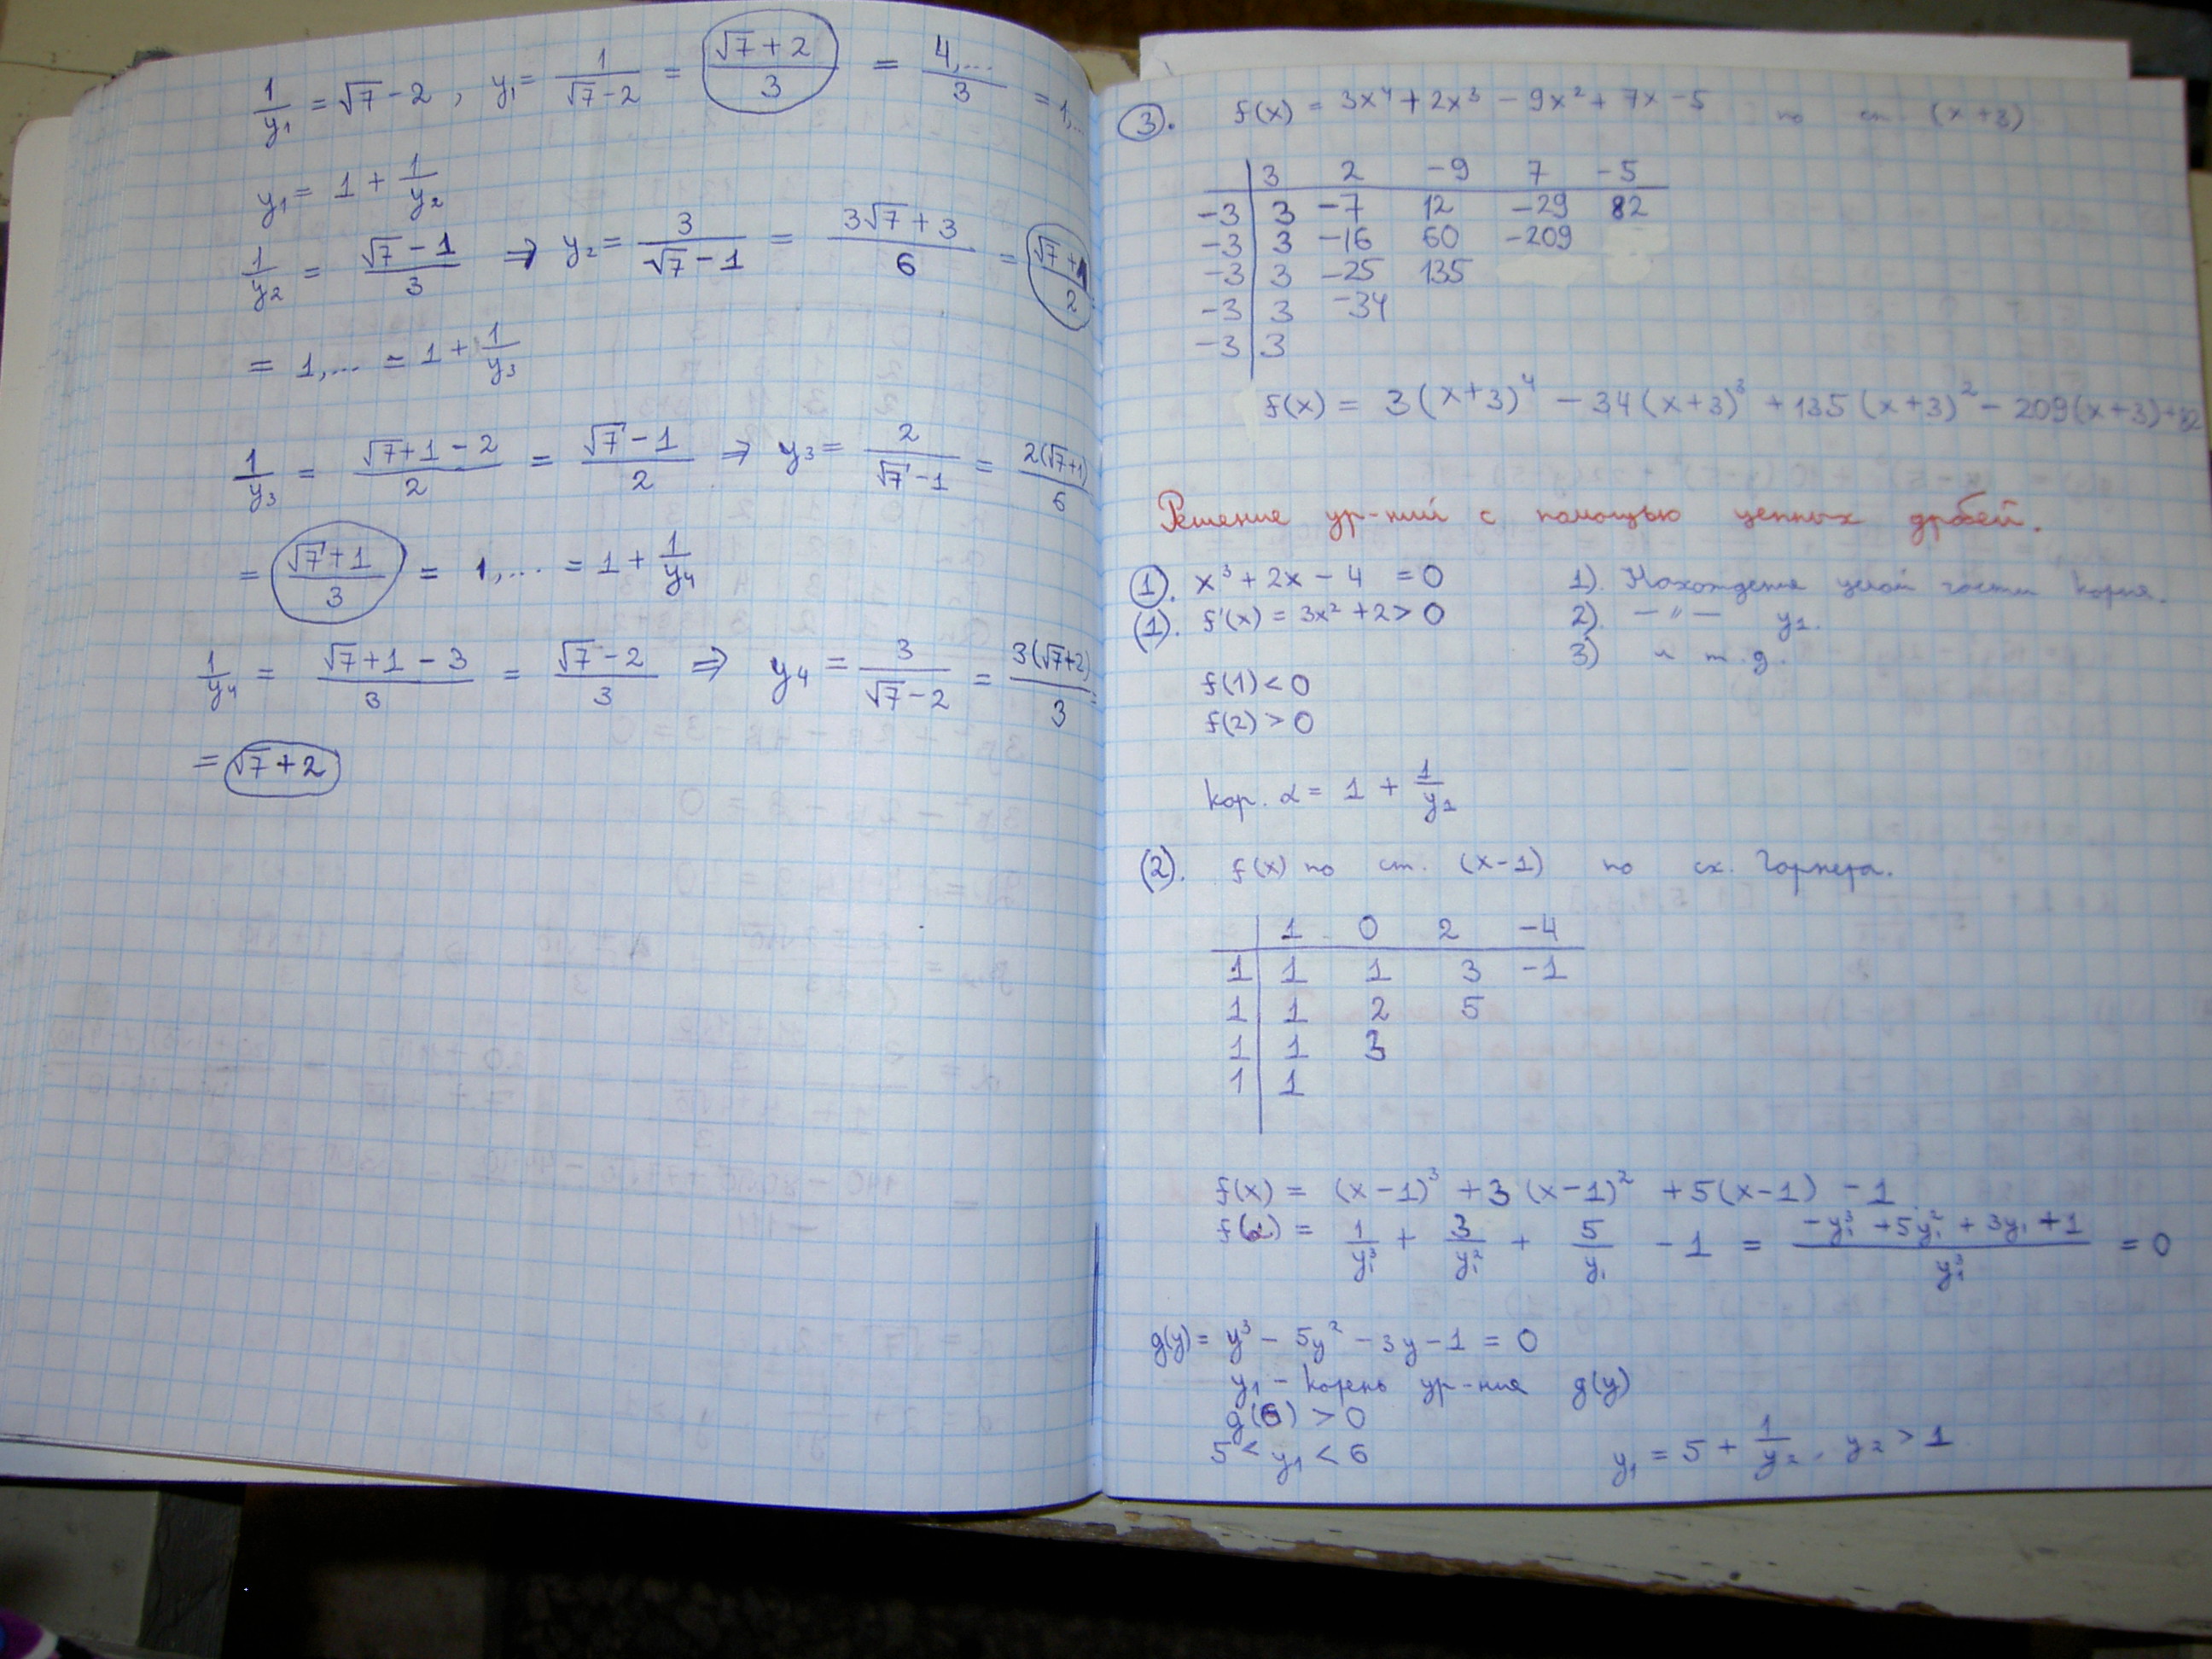 1/y₁ = √7 - 2 , y₁ = 1/(√7 - 2) = (√7 + 2)/3 = 4,.../3 = 1,...
y₁ = 1 + 1/y₂
1/y₂ = (√7 - 1)/3 ⇒ y₂ = 3/(√7 - 1) = (3√7 + 3)/6 = (√7 + 1)/2
= 1,... = 1 + 1/y₃
1/y₃ = (√7 + 1 - 2)/2 = (√7 - 1)/2 ⇒ y₃ = 2/(√7 - 1) = 2(√7 + 1)/6
= (√7 + 1)/3 = 1,... = 1 + 1/y₄
1/y₄ = (√7 + 1 - 3)/3 = (√7 - 2)/3 ⇒ y₄ = 3/(√7 - 2) = 3(√7 + 2)/3 =
= √7 + 2
3. f(x) = 3x⁴ + 2x³ - 9x² + 7x - 5 по ст. (x + 3)
3 2 -9 7 -5
-3 3 -7 12 -29 82
-3 3 -16 60 -209
-3 3 -25 135
-3 3 -34
-3 3
f(x) = 3(x+3)⁴ - 34(x+3)³ + 135(x+3)² - 209(x+3) + 82
Решение ур-ний с помощью цепных дробей.
1. x³ + 2x - 4 = 0 1). Нахождение целой части корня.
(1). f'(x) = 3x² + 2 > 0 2). —"— y₁.
3) и т.д.
f(1) < 0
f(2) > 0
кор. α = 1 + 1/y₁
(2). f(x) по ст. (x-1) по сх. Горнера.
1 0 2 -4
1 1 1 3 -1
1 1 2 5
1 1 3
1 1
f(x) = (x-1)³ + 3(x-1)² + 5(x-1) - 1
f(α) = 1/y₁³ + 3/y₁² + 5/y₁ - 1 = (-y₁³ + 5y₁² + 3y₁ + 1)/y₁³ = 0
g(y) = y³ - 5y² - 3y - 1 = 0
y₁ - корень ур-ния g(y)
g(6) > 0
5 < y₁ < 6 y₁ = 5 + 1/y₂, y₂ > 1